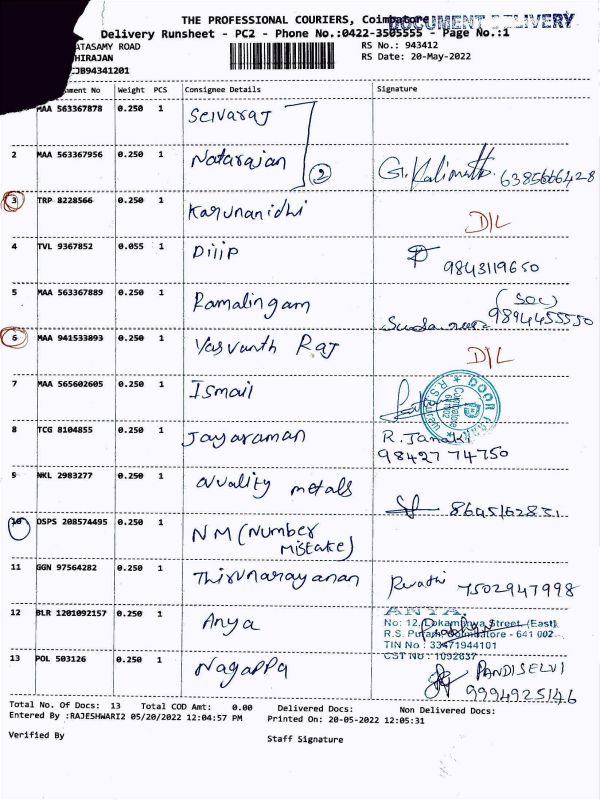 THE PROFESSIONAL COURIERS, Coimbatore
DOCUMENT DELIVERY
Delivery Runsheet - PC2 - Phone No.:0422-3505555 - Page No.:1
ATASAMY ROAD
RS No.: 943412
HIRAJAN
RS Date: 20-May-2022
JB94341201
ment No Weight PCS Consignee Details Signature
MAA 563367878 0.250 1 Selvaraj
2 MAA 563367956 0.250 1 Natarajan 2 G. Kalimuthu 6385666428
3 TRP 8228566 0.250 1 Karunanidhi D/L
4 TVL 9367852 0.055 1 Dilip 9843119650
5 MAA 563367889 0.250 1 Ramalingam 9894455550
6 MAA 941533893 0.250 1 Yasvanth Raj D/L
7 MAA 565602605 0.250 1 Ismail
8 TCG 8104855 0.250 1 Jayaraman R. Janaki
98427 74750
9 NKL 2983277 0.250 1 Quality metals
10 DSPS 208574495 0.250 1 NM (Number
Mistake)
11 GGN 97564282 0.250 1 Thirunarayanan Revathi 7502947998
12 BLR 1201092157 0.250 1 Anya ANYA
No: 12, Lokamanya Street, (East)
R.S. Puram, Coimbatore - 641 002
TIN No : 33471944101
CST No : 1092637
13 POL 503126 0.250 1 Nagappa PANDISELVI
9994925146
Total No. Of Docs: 13 Total COD Amt: 0.00 Delivered Docs: Non Delivered Docs:
Entered By :RAJESHWARI2 05/20/2022 12:04:57 PM Printed On: 20-05-2022 12:05:31
Verified By Staff Signature